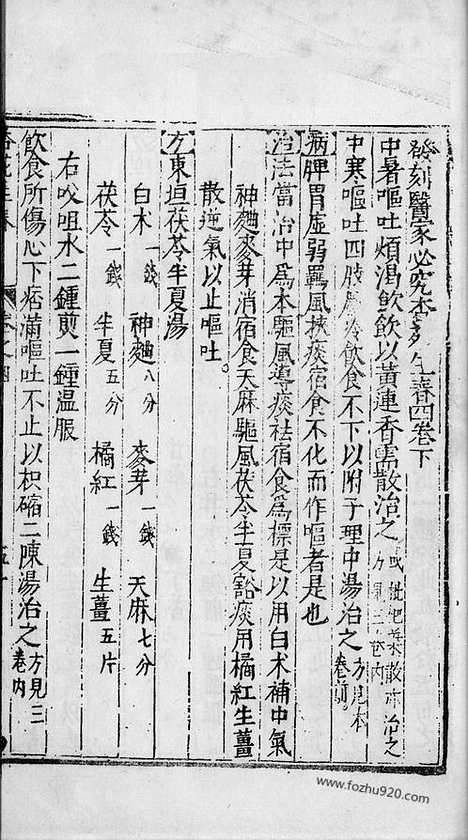 發刻醫家必究杏苑生春四卷下
中暑嘔吐煩渴飲飲以黃連香薷散治之或枇杷葉散亦治之方見二卷內
中寒嘔吐四肢厥冷飲食不下以附子理中湯治之方見本卷前
病脾胃虛弱羈風挾痰宿食不化而作嘔者是也
治法當治中為本驅風導痰袪宿食為標是以用白木補中氣
神麯麥芽消宿食天麻驅風茯苓半夏豁痰用橘紅生薑
散逆氣以止嘔吐
方東垣茯苓半夏湯
白木一錢 神麯八分 麥芽一錢 天麻七分
茯苓一錢 半夏五分 橘紅一錢 生薑五片
右㕮咀水二鍾煎一鍾温服
飲食所傷心下痞滿嘔吐不止以枳縮二陳湯治之方見三卷內
www.fozhu920.com